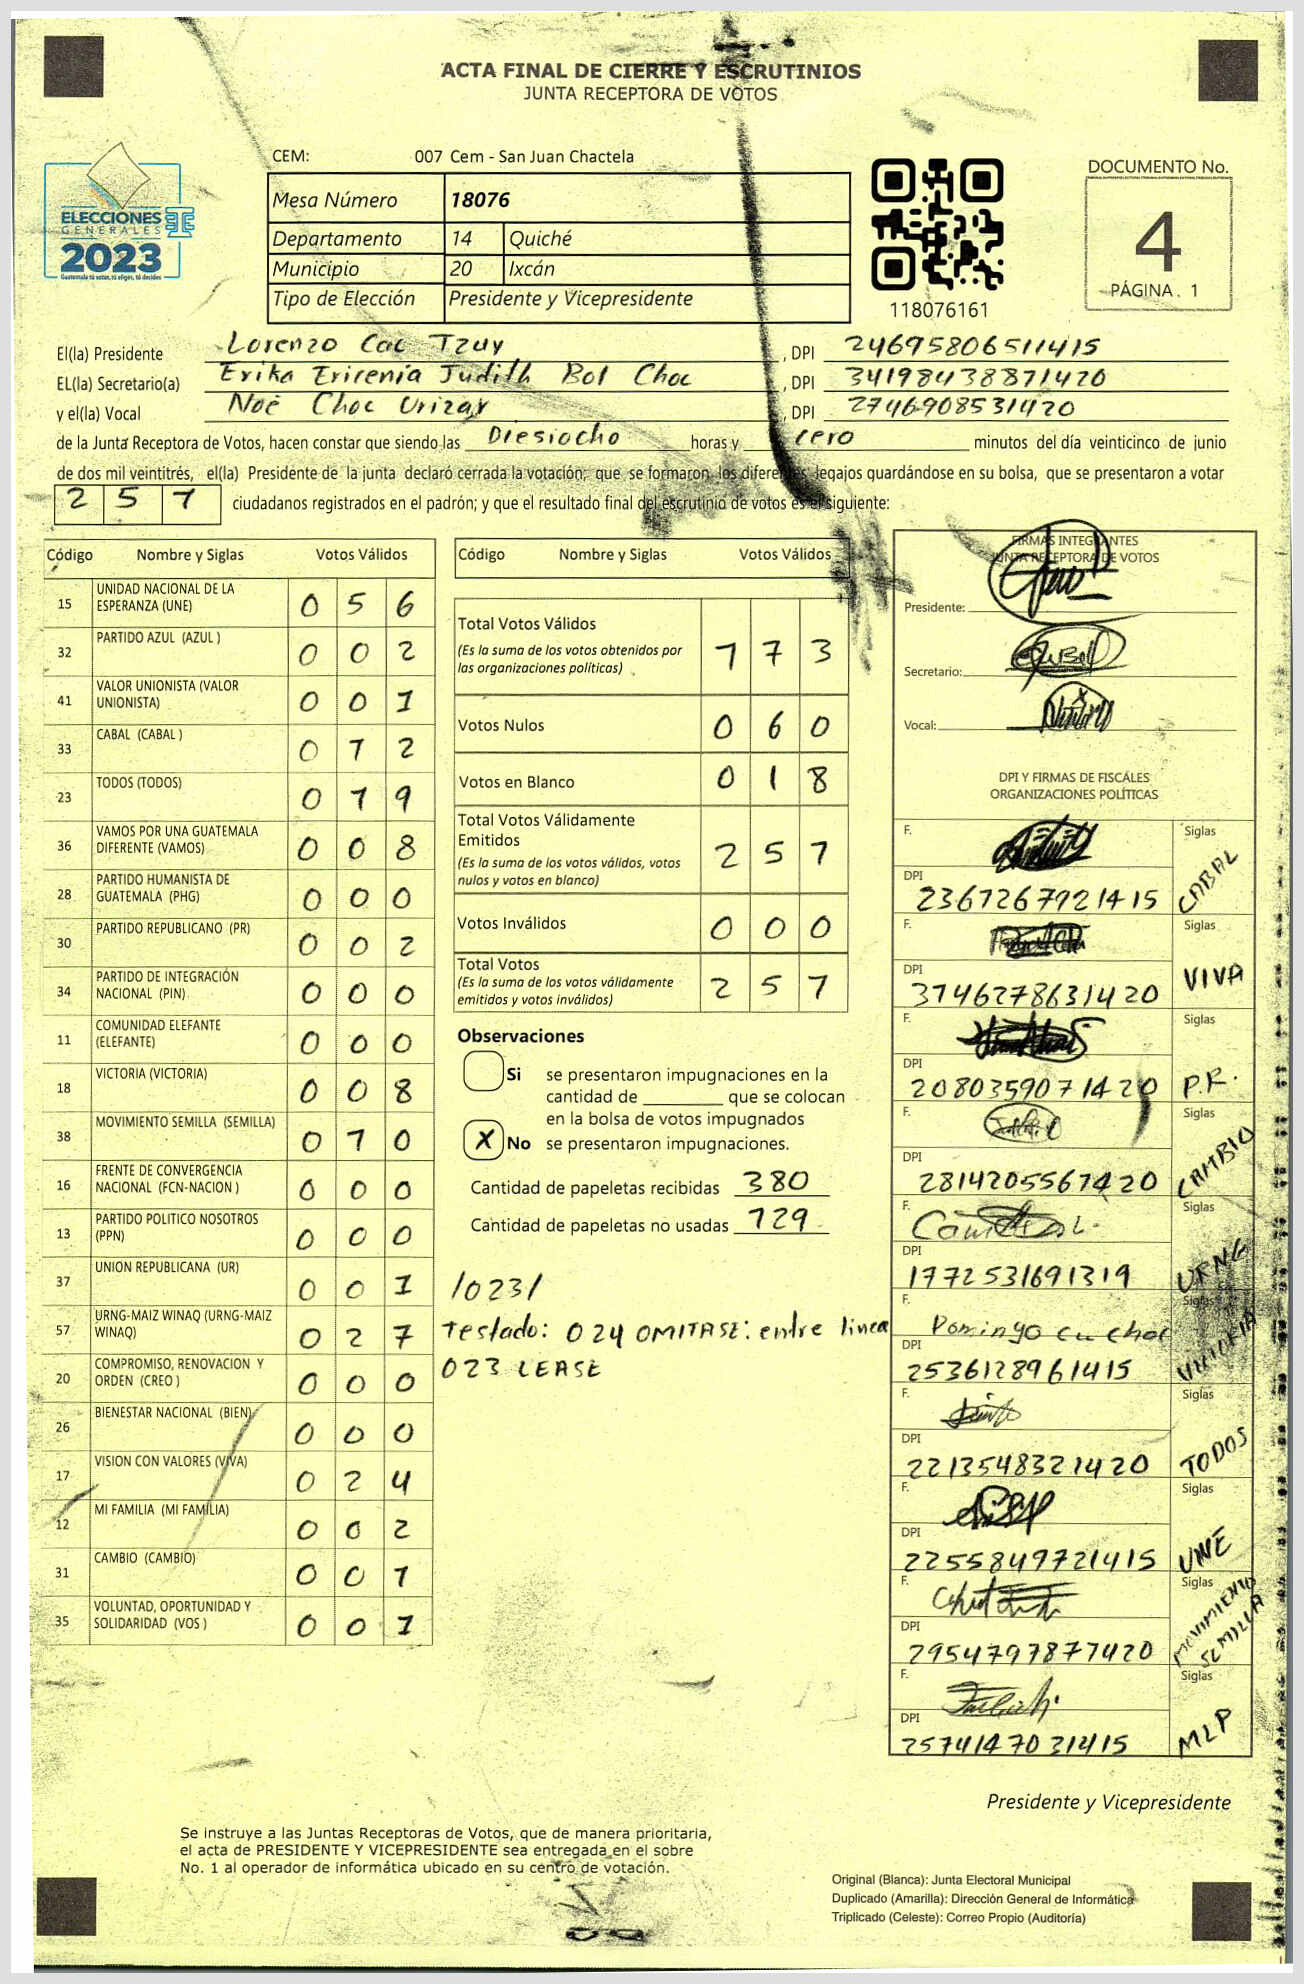 ACTA FINAL DE CIERRE Y ESCRUTINIOS
JUNTA RECEPTORA DE VOTOS
ELECCIONES
GENERALES
2023
Guatemala tú votas, tú eliges, tú decides
CEM: 007 Cem - San Juan Chactela
Mesa Número 18076
Departamento 14 Quiché
Municipio 20 Ixcán
Tipo de Elección Presidente y Vicepresidente
118076161
DOCUMENTO No.
4
PÁGINA . 1
El(la) Presidente Lorenzo Cac Tzuy , DPI 24695806511415
EL(la) Secretario(a) Erika Iricenia Judith Bol Choc , DPI 34198438871420
y el(la) Vocal Noé Choc Urizar , DPI 2746908531420
de la Junta Receptora de Votos, hacen constar que siendo las Diesiocho horas y cero minutos del día veinticinco de junio
de dos mil veintitrés, el(la) Presidente de la junta declaró cerrada la votación; que se formaron los diferentes legajos guardándose en su bolsa, que se presentaron a votar
2 5 7 ciudadanos registrados en el padrón; y que el resultado final del escrutinio de votos es el siguiente:
Código Nombre y Siglas Votos Válidos
15 UNIDAD NACIONAL DE LA ESPERANZA (UNE) 0 5 6
32 PARTIDO AZUL (AZUL ) 0 0 2
41 VALOR UNIONISTA (VALOR UNIONISTA) 0 0 1
33 CABAL (CABAL ) 0 1 2
23 TODOS (TODOS) 0 1 9
36 VAMOS POR UNA GUATEMALA DIFERENTE (VAMOS) 0 0 8
28 PARTIDO HUMANISTA DE GUATEMALA (PHG) 0 0 0
30 PARTIDO REPUBLICANO (PR) 0 0 2
34 PARTIDO DE INTEGRACIÓN NACIONAL (PIN) 0 0 0
11 COMUNIDAD ELEFANTE (ELEFANTE) 0 0 0
18 VICTORIA (VICTORIA) 0 0 8
38 MOVIMIENTO SEMILLA (SEMILLA) 0 1 0
16 FRENTE DE CONVERGENCIA NACIONAL (FCN-NACION ) 0 0 0
13 PARTIDO POLITICO NOSOTROS (PPN) 0 0 0
37 UNION REPUBLICANA (UR) 0 0 1
57 URNG-MAIZ WINAQ (URNG-MAIZ WINAQ) 0 2 7
20 COMPROMISO, RENOVACION Y ORDEN (CREO ) 0 0 0
26 BIENESTAR NACIONAL (BIEN) 0 0 0
17 VISION CON VALORES (VIVA) 0 2 4
12 MI FAMILIA (MI FAMILIA) 0 0 2
31 CAMBIO (CAMBIO) 0 0 1
35 VOLUNTAD, OPORTUNIDAD Y SOLIDARIDAD (VOS ) 0 0 1
Código Nombre y Siglas Votos Válidos
Total Votos Válidos 1 7 3
(Es la suma de los votos obtenidos por
las organizaciones políticas)
Votos Nulos 0 6 0
Votos en Blanco 0 1 8
Total Votos Válidamente
Emitidos 2 5 7
(Es la suma de los votos válidos, votos
nulos y votos en blanco)
Votos Inválidos 0 0 0
Total Votos 2 5 7
(Es la suma de los votos válidamente
emitidos y votos inválidos)
Observaciones
Si se presentaron impugnaciones en la
cantidad de ________ que se colocan
en la bolsa de votos impugnados
X No se presentaron impugnaciones.
Cantidad de papeletas recibidas 380
Cantidad de papeletas no usadas 129
/023/
Testado: 024 OMITASE: entre linea
023 LEASE
FIRMAS INTEGRANTES
JUNTA RECEPTORA DE VOTOS
Presidente:
Secretario:
Vocal:
DPI Y FIRMAS DE FISCALES
ORGANIZACIONES POLÍTICAS
F. Siglas CABAL
DPI 2367267921415
F. Siglas VIVA
DPI 3746278631420
F. Siglas P.R.
DPI 2080359071420
F. Siglas CAMBIO
DPI 2814205567420
F. Siglas URNG
DPI 1772531691319
F. Domingo Cu Choc Siglas
DPI 2536128961415
F. Siglas TODOS
DPI 2213548321420
F. Siglas UNE
DPI 2255849721415
F. Siglas MOVIMIENTO SEMILLA
DPI 2954797877420
F. Siglas MLP
DPI 2574147031415
Presidente y Vicepresidente
Se instruye a las Juntas Receptoras de Votos, que de manera prioritaria,
el acta de PRESIDENTE Y VICEPRESIDENTE sea entregada en el sobre
No. 1 al operador de informática ubicado en su centro de votación.
Original (Blanca): Junta Electoral Municipal
Duplicado (Amarilla): Dirección General de Informática
Triplicado (Celeste): Correo Propio (Auditoría)